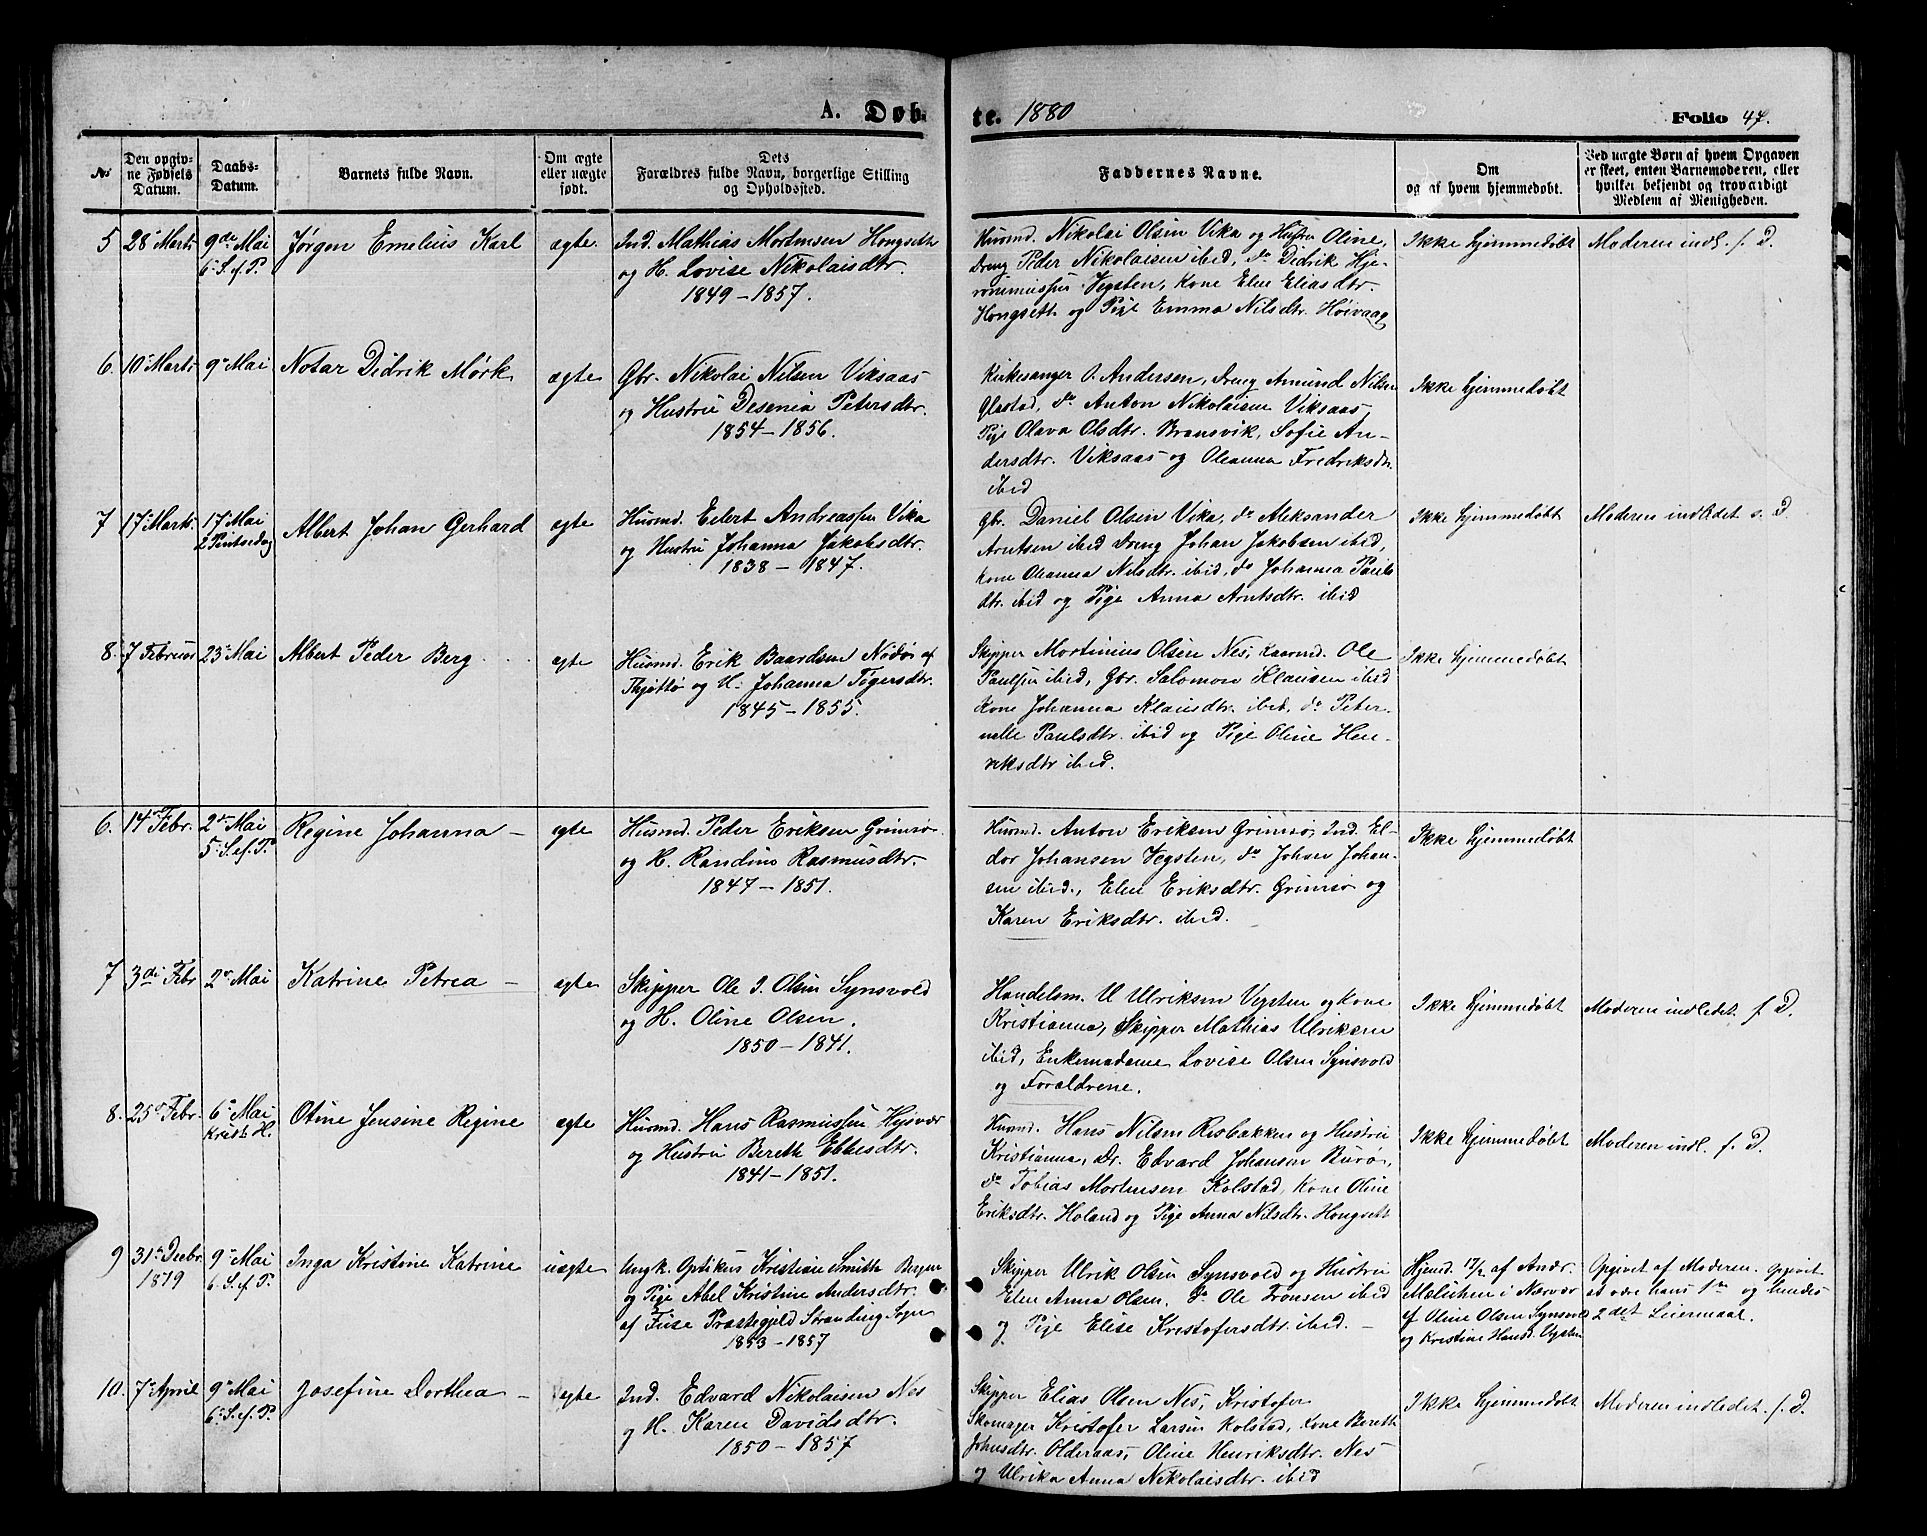 A. Døb-
te. 1880
Folio 47.
No
Den opgiv-
ne Fødsels
Datum.
Daabs-
Datum.
Barnets fulde Navn.
Om ægte
eller uægte
født.
Dets
Forældres fulde Navn, borgerlige Stilling
og Opholdssted.
Faddernes Navne.
Om
og af hvem hjemmedøbt.
Ved uægte Børn af hvem Opgaven
er skeet, enten Barnemoderen, eller
hvilket bekjendt og troværdigt
Medlem af Menigheden.
5 28 Marts 9de Mai
6 S. e. f. P.
Jørgen Emelius Karl
ægte
Ind. Mathias Mortensen Hongseth
og H. Lovise Nikolaisdtr.
1849 – 1857.
Husmd. Nikolai Olsen Vika og Hustru Oline,
Dreng Peder Nikolaisen ibid, do Didrik Hje-
ronimussen Vegsten, Kone Elen Eliasdtr.
Hongseth og Pige Emma Nilsdtr. Høivaag
Ikke hjemmedøbt
Moderen indl. f. D.
6. 10 Marts 9 Mai
Notar Didrik Mørk
ægte
Gbr. Nikolai Nilsen Viksaas
og Hustru Desenia Petersdtr.
1854 – 1856.
Kirkesanger O. Andersen, Dreng Amund Nilsen
Glastad, do Anton Nikolaisen Viksaas,
Pige Olava Olsdtr. Bransvik, Sofie An-
dersdtr. Viksaas og Oleanna Fredriksdtr.
ibid
Ikke hjemmedøbt
7 17 Marts 17 Mai
2 Pintsedag
Albert Johan Gerhard
ægte
Husmd. Eilert Andreassen Vika
og Hustru Johanna Jakobsdtr.
1838 – 1847.
Gbr. Daniel Olsen Vika, do Aleksander
Arntsen ibid Dreng Johan Jakobsen ibid,
Kone Oleanna Nilsdtr. ibid, do Johanna Pauls
dtr. ibid og Pige Anna Arntsdtr. ibid
Ikke hjemmedøbt
Moderen indledet s. D
8. 7 Februar 23 Mai
Albert Peder Berg
ægte
Husmd. Erik Baardsen Nødø af
Thjøttø og H. Johanna Tigersdtr.
1845 – 1855.
Skipper Mortinius Olsen Nes, Kaarmd. Ole
Paulsen ibid, Gbr. Salomon Klausen ibid
Kone Johanna Klausdtr. ibid, do Peter-
nelle Paulsdtr. ibid og Pige Oline Hen-
riksdtr ibid.
Ikke hjemmedøbt
6. 14 Febr. 2 Mai
5 S. e. f. P.
Regine Johanna –
ægte
Husmd. Peder Eriksen Grimsø
og H. Randine Rasmusdtr.
1847 – 1851.
Husmd. Anton Eriksen Grimsø, Ind. El-
dor Johansen Vegsten, do Johan Johan-
sen ibid., Elen Eriksdtr. Grimsø og
Karen Eriksdtr. ibid.
Ikke hjemmedøbt
7 3di Febr 2 Mai
Katrine Petrea –
ægte
Skipper Ole I. Olsen Synsvold
og H. Oline Olsen.
1850 – 1841.
Handelsm. U Ulriksen Vegsten og Kone
Kristianna, Skipper Mathias Ulriksen
ibid, Enkemadame Lovise Olsen Synsvold
og Forældrene.
Ikke hjemmedøbt
Moderen indledet f. D.
8. 25 Febr. 6 Mai
Kristi H.
Otine Jensine Regine
ægte
Husmd. Hans Rasmussen Hejsvær
og Hustru Bereth Ebbesdtr.
1841 – 1851.
Husmd. Hans Nilsen Risbakken og Hustru
Kristianna, Dr. Edvard Johansen Burø,
do Tobias Mortensen Kolstad, Kone Oline
Eriksdtr. Holand og Pige Anna Nilsdtr. Hongseth
Ikke hjemmedøbt
Moderen indl. f. D.
9 31 Decbr.
1879
9 Mai
6 S. e. f. P.
Inga Kristine Katrine
uægte
Ungk. Optikus Kristian Smith Bergen
og Pige Abel Kristine Andersdtr.
af Fuse Præstegjeld Strandvig Sogn
1853 – 1857
Skipper Ulrik Olsen Synsvold og Hustru
Elen Anna Olsen. do Ole Tronsen ibid
og Pige Elise Kristofersdtr. ibid. –
Hjemd. 17/2 af Andr.
i Nærvær
af Oline Olsen Synsvold
og Kristine Vegsten
Opgivet af Moderen. opgivet
at være hans 1ste og hendes
2det Leiermaal.
10. 7 April 9 Mai
6 S. e. f. P.
Josefine Dorthea –
ægte
Ind. Edvard Nikolaisen Nes
og H. Karen Davidsdtr.
1850 – 1857
Skipper Elias Olsen Nes, Kristofer
Skomager Kristofer Larsen Kolstad, Kone Bereth
Johnsdtr. Olderaas, Oline Henriksdtr. Nes
og Ulrika Anna Nikolaisdtr. ibid
Ikke hjemmedøbt
Moderen indledet. f. D.